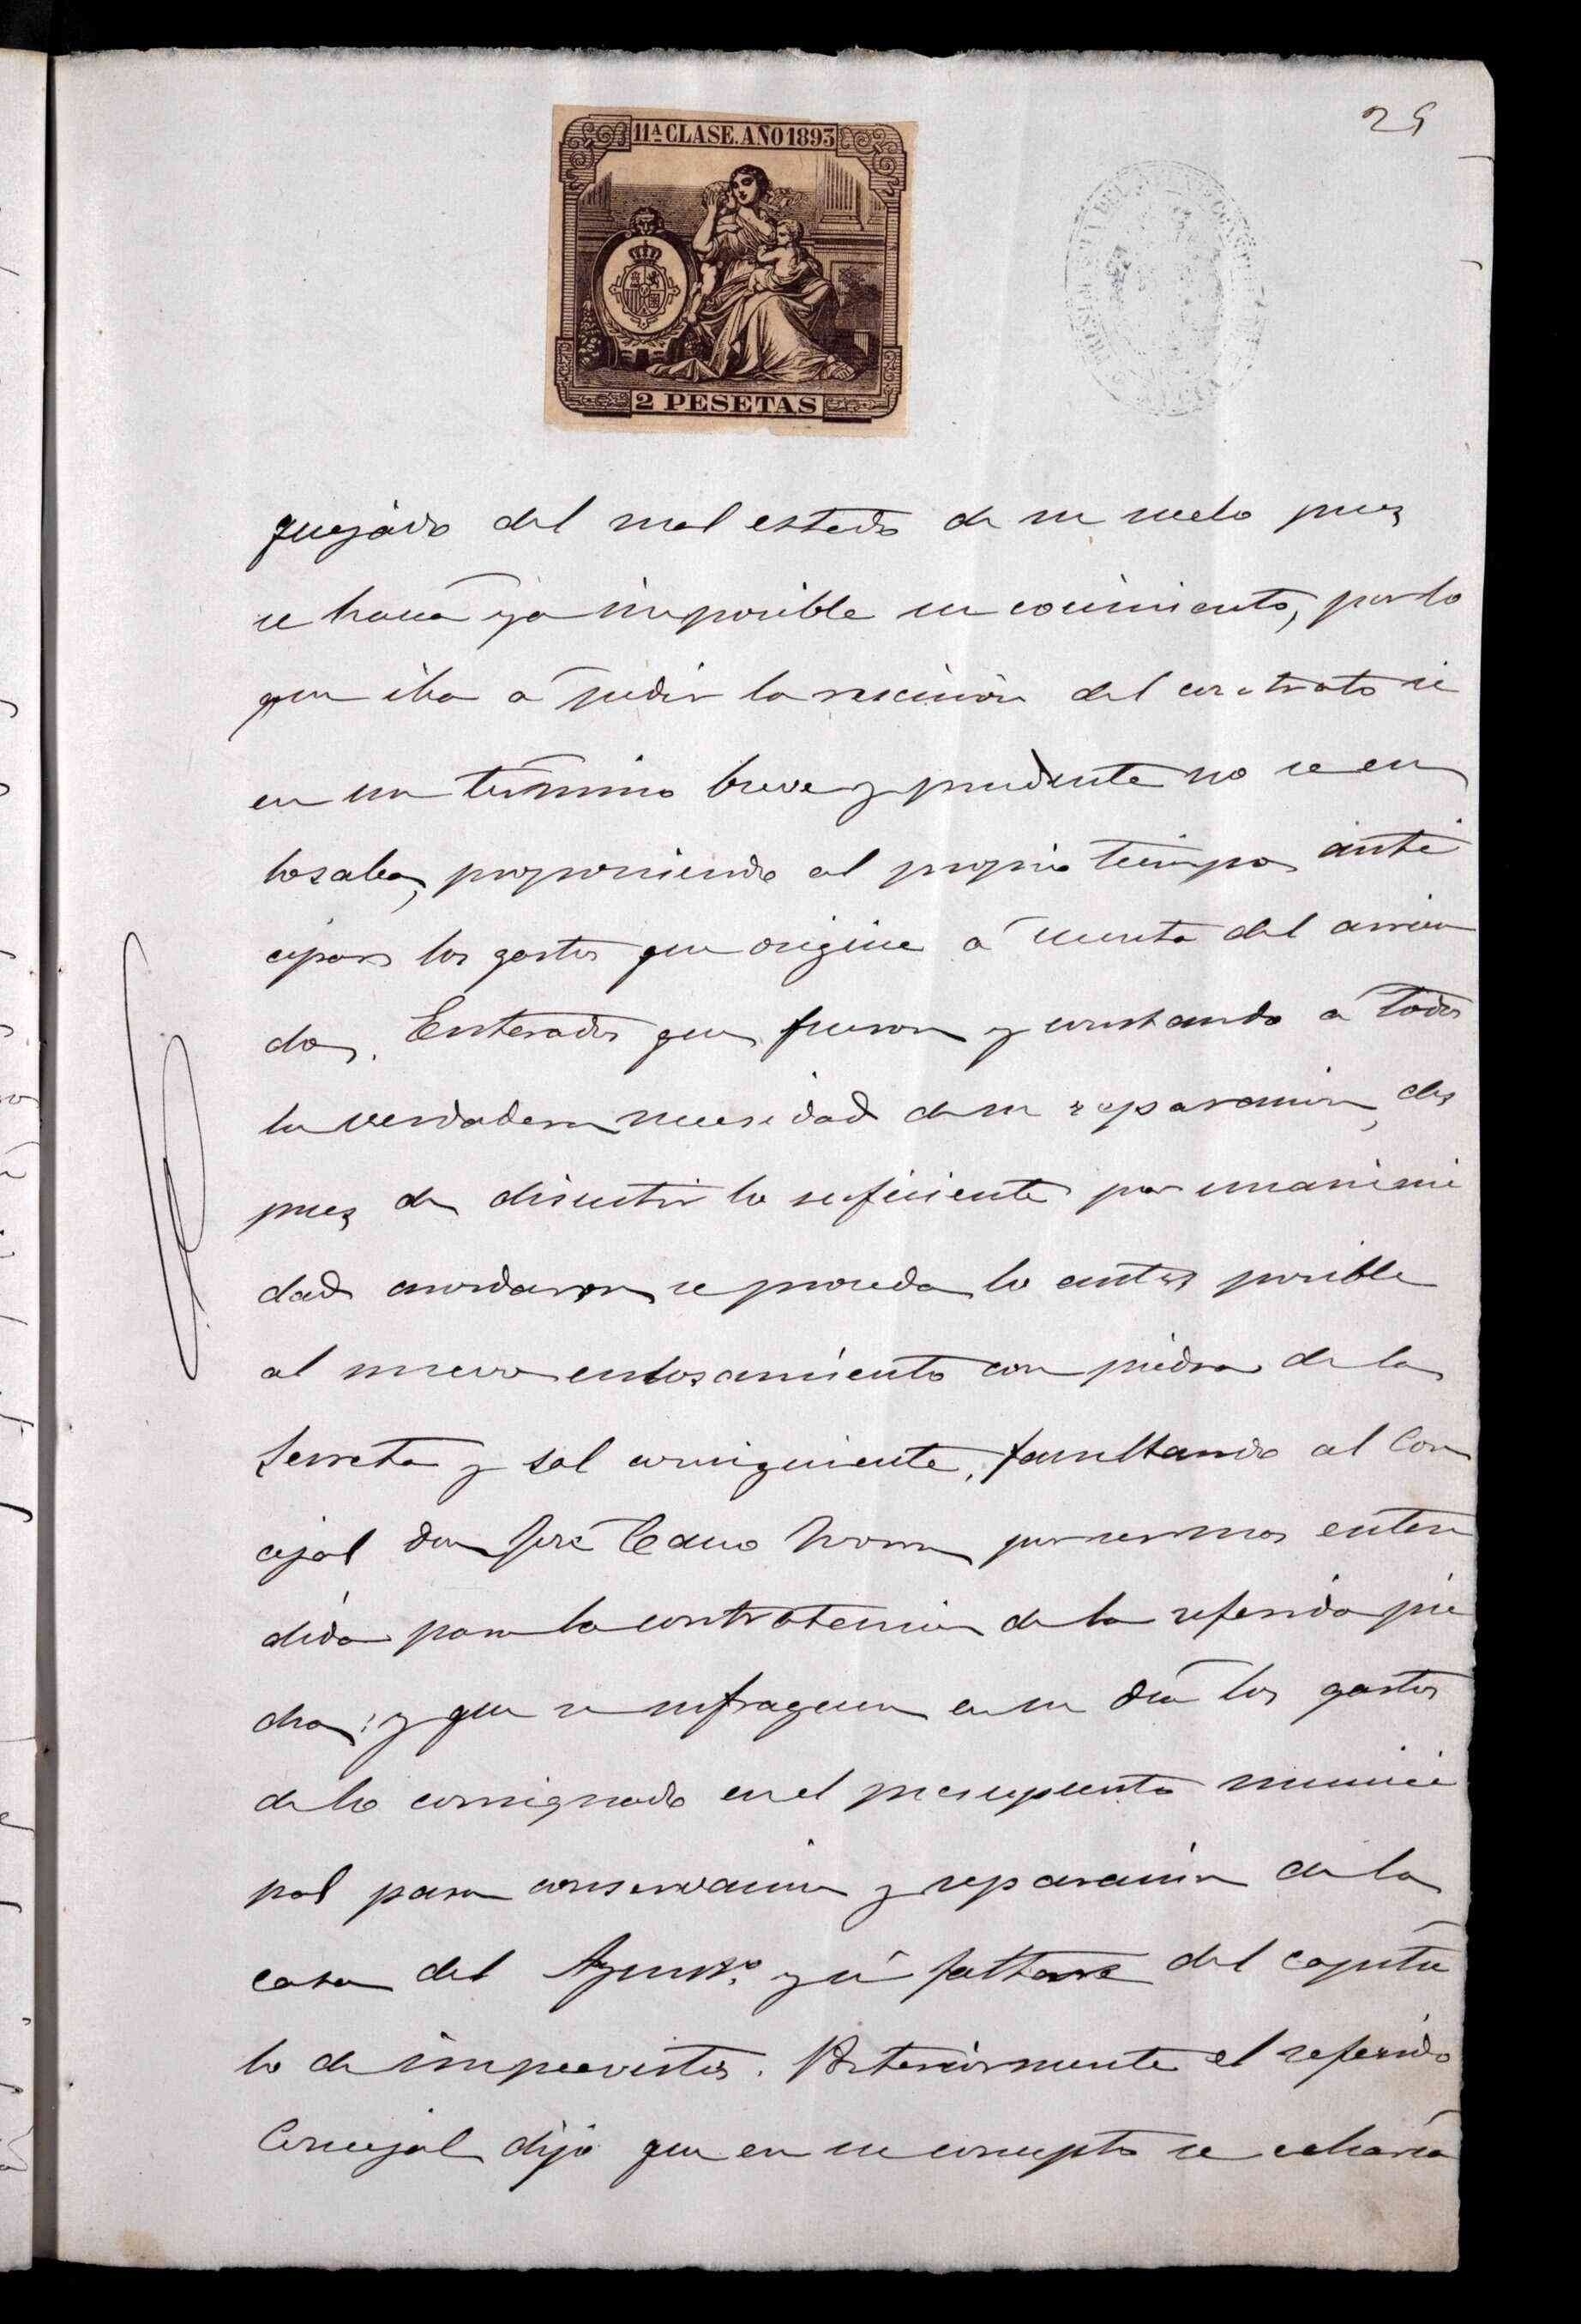 25
11ª CLASE. AÑO 1893
2 PESETAS
quejádo del mal estado de su suelo pues
se hacia ya imposible su cocimiento, por lo
que iba á pedir la rescision del contrato si
en un término breve y prudente no se en
losaba, proponiendo al propio tiempo anti
cipar los gastos que origine á cuenta del arrien
do. Enterados que fueron y constando á todos
la verdadera necesidad de su reparacion, des
pues de discutir lo suficiente por unanimi
dad acordaron se proceda lo antes posible
al nuevo enlosamiento con piedra de la
Serreta y sal consiguiente, facultando al Con
cejal don José Cano por ser mas enten
dido para la contratacion de la referida pie
dra; y que se sufraguen en su dia los gastos
de lo consignado en el presupuesto munici
pal para conservacion y reparacion de la
casa del Ayuntº. y si faltare del capítu
lo de imprevistos. Posteriormente el referido
Concejal dijo que en su concepto se echaría